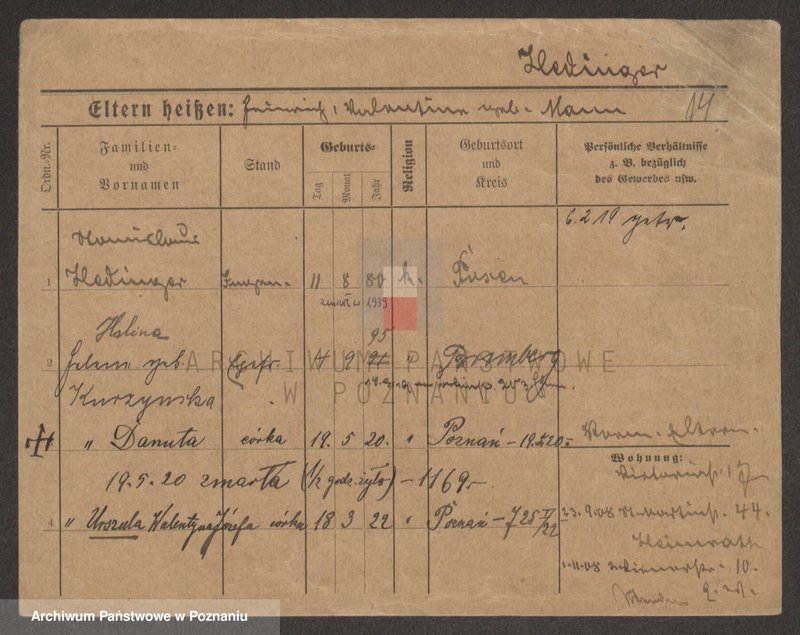 Hedinger
Eltern heißen: Heinrich, Valentine geb. Mann 14
Ordn.-Nr.
Familien- und Vornamen
Stand
Geburts-
Tag
Monat
Jahr
Religion
Geburtsort und Kreis
Persönliche Verhältnisse z. B. bezüglich des Gewerbes usw.
6. 2 19 getr.
1 Hedinger 11 8 80 k. Posen
zmarł w 1939
Halina 95
2 geb. Ehefr. 9 " Bromberg
Kurzynska
" Danuta córka 19. 5 20. " Poznań
19. 5. 20 zmarła (1/2 godz. żyła) – 1169 –
4 " Urszula Walentyna Józefa córka 18 3 22 " Poznań – 725 IV/22
Vorm. Eltern.
Wohnung:
Viktoriastr. 17
23. 9. 08 St. Martinstr. 44.
1. 11. 08 10.
ARCHIWUM PAŃSTWOWE
W POZNANIU
Archiwum Państwowe w Poznaniu